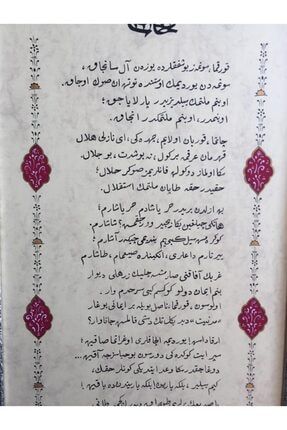 قورقما، سونمز بو شفقلرده یوزن آل سانجاق،
سونمه‌دن یوردیمك اوستنده توتن اڭ صوڭ اوجاق.
او بنم ملتمك ییلدیزیدر پارلایاجق؛
او بنمدر، او بنم ملتمكدر آنجاق.
چاتما، قوربان اولایم، چهره‌كی، ای نازلی هلال
قهرمان عرقمه بر كول، نه بو شدت، بو جلال
سكا اولماز دوكولن قانلریمز صوكره حلال؛
حقیدر حقه طاپان ملتمك استقلال.
بن ازلدن بریدر حر یاشادم حر یاشارم؛
هانكی چیلغین بكا زنجیر ووره‌جقمش؟ شاشارم.
كوكره‌مش سیل كبی‌یم بندیمی چیكنر آشارم؛
ییرتارم داغلری، انكینلره صیغمام، طاشارم.
غربك آفاقنی صارمشسه چلیك زرهلی دیوار
بنم ایمان دولو كوكسم كبی سرحدم وار.
اولوسون، قورقما! ناصل بویله بر ایمانی بوغار
"مدنیت" دیدیكك تك دیشی قالمش جاناوار؟
آرقداش! یوردیمه آلچاقلری اوغراتما صاقین؛
سپر ایت كوكده‌كی دورسون بو حیاسزجه آقین...
دوغاجقدر سكا وعد ایتدیكی كونلر حقك،
كیم بیلیر، بلكه یارین؛ بلكه یاریندن ده یاقین!